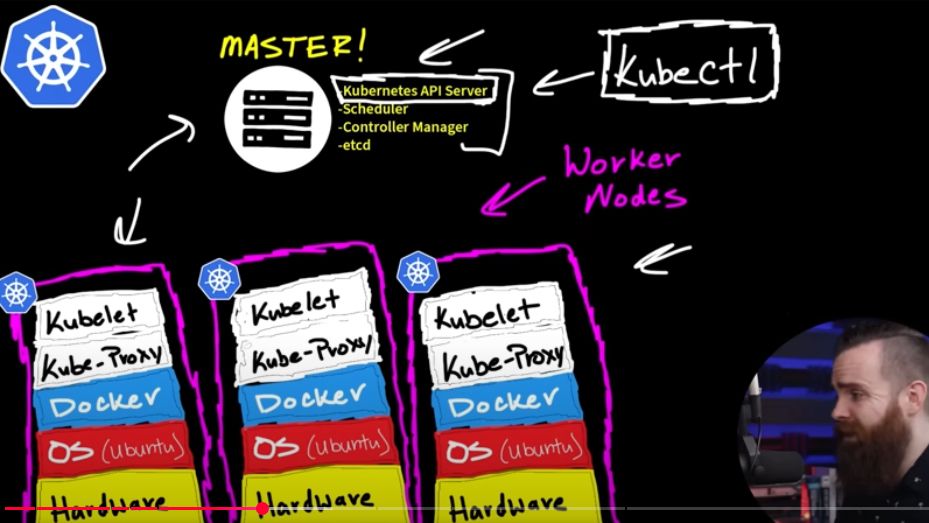 MASTER!
-Kubernetes API Server
-Scheduler
-Controller Manager
-etcd
Kubectl
Worker
Nodes
Kubelet
Kube-Proxy
Docker
OS (Ubuntu)
Hardware
Kubelet
Kube-Proxy
Docker
OS (Ubuntu)
Hardware
Kubelet
Kube-Proxy
Docker
OS (Ubuntu)
Hardware